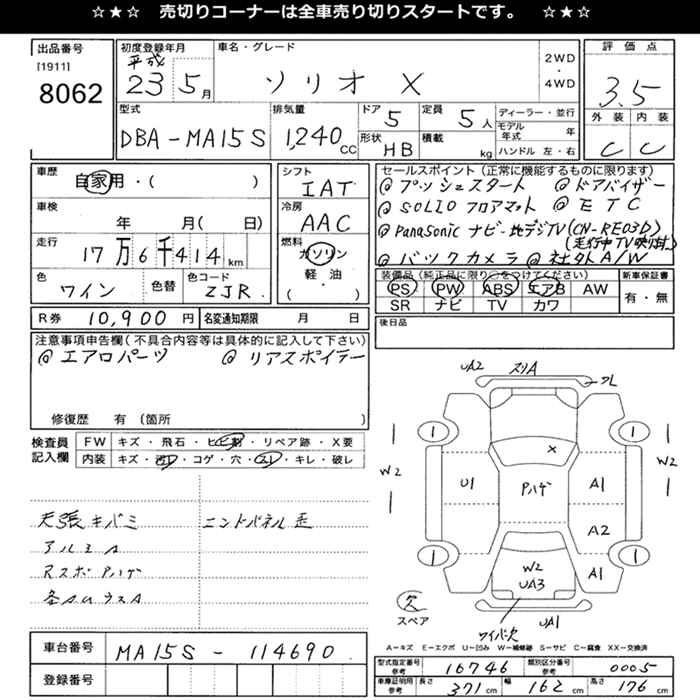 ☆★☆ 売切りコーナーは全車売り切りスタートです。 ☆★☆
出品番号
[1911]
8062
初度登録年月
平成
23 5月
車名・グレード
ソリオ X
2WD
・
4WD
評価点
3.5
外装 内装
C C
型式
DBA-MA15S
排気量
1,240 CC
ドア 5
定員 5人
形状 HB
積載 kg
ディーラー・並行
モデル年式 年
ハンドル 左・右
車歴
自家用・( )
車検
年 月( 日)
走行
17万6千414km
色
ワイン
色替
色コード
ZJR
シフト
IAT
冷房
AAC
燃料
ガソリン
軽・油
( )
セールスポイント(正常に機能するものに限ります)
@プッシュスタート @ドアバイザー
@SOLIO フロアマット @ETC
@Panasonic ナビ-地デジTV(CN-RE03D)
(走行中TV映り対)
@バックカメラ @社外A/W
装備品(純正品に限り○をつけてください)
PS PW ABS エアB AW
SR ナビ TV カワ
新車保証書
有・無
R券 10,900円
名変通知期限 月 日
後日品
注意事項申告欄(不具合内容等は具体的に記入して下さい)
@エアロパーツ @リアスポイラー
修復歴 有(箇所 )
検査員
記入欄
FW キズ・飛石・ヒビ割・リペア跡・X要
内装 キズ・汚レ・コゲ・穴・スレ・キレ・破レ
天張キバミ
アルミA
Rスポ Pハゲ
各AUウスA
UA2 スリA
クレ
1 1
W2 W2
X
U1 Pハゲ A1
A2
1 1
W2
UA3
A1
欠
スペア
ワイパー欠
UA1
A=キズ E=エクボ U=凹み W=補修跡 S=サビ C=腐食 XX=交換済
車台番号
MA15S - 114690
登録番号
型式指定番号
参考
16746
類別区分番号
参考
0005
車庫証明用
参考
長さ 371 cm
幅 162 cm
高さ 176 cm